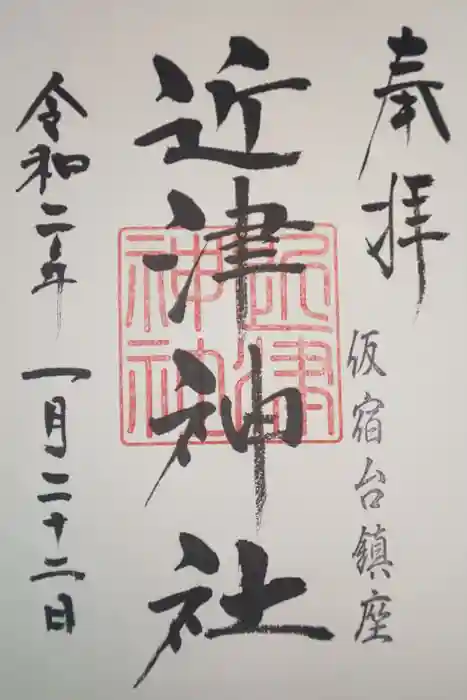 奉拝
仮宿台鎮座
近津神社
近津神社
令和二年 一月二十二日